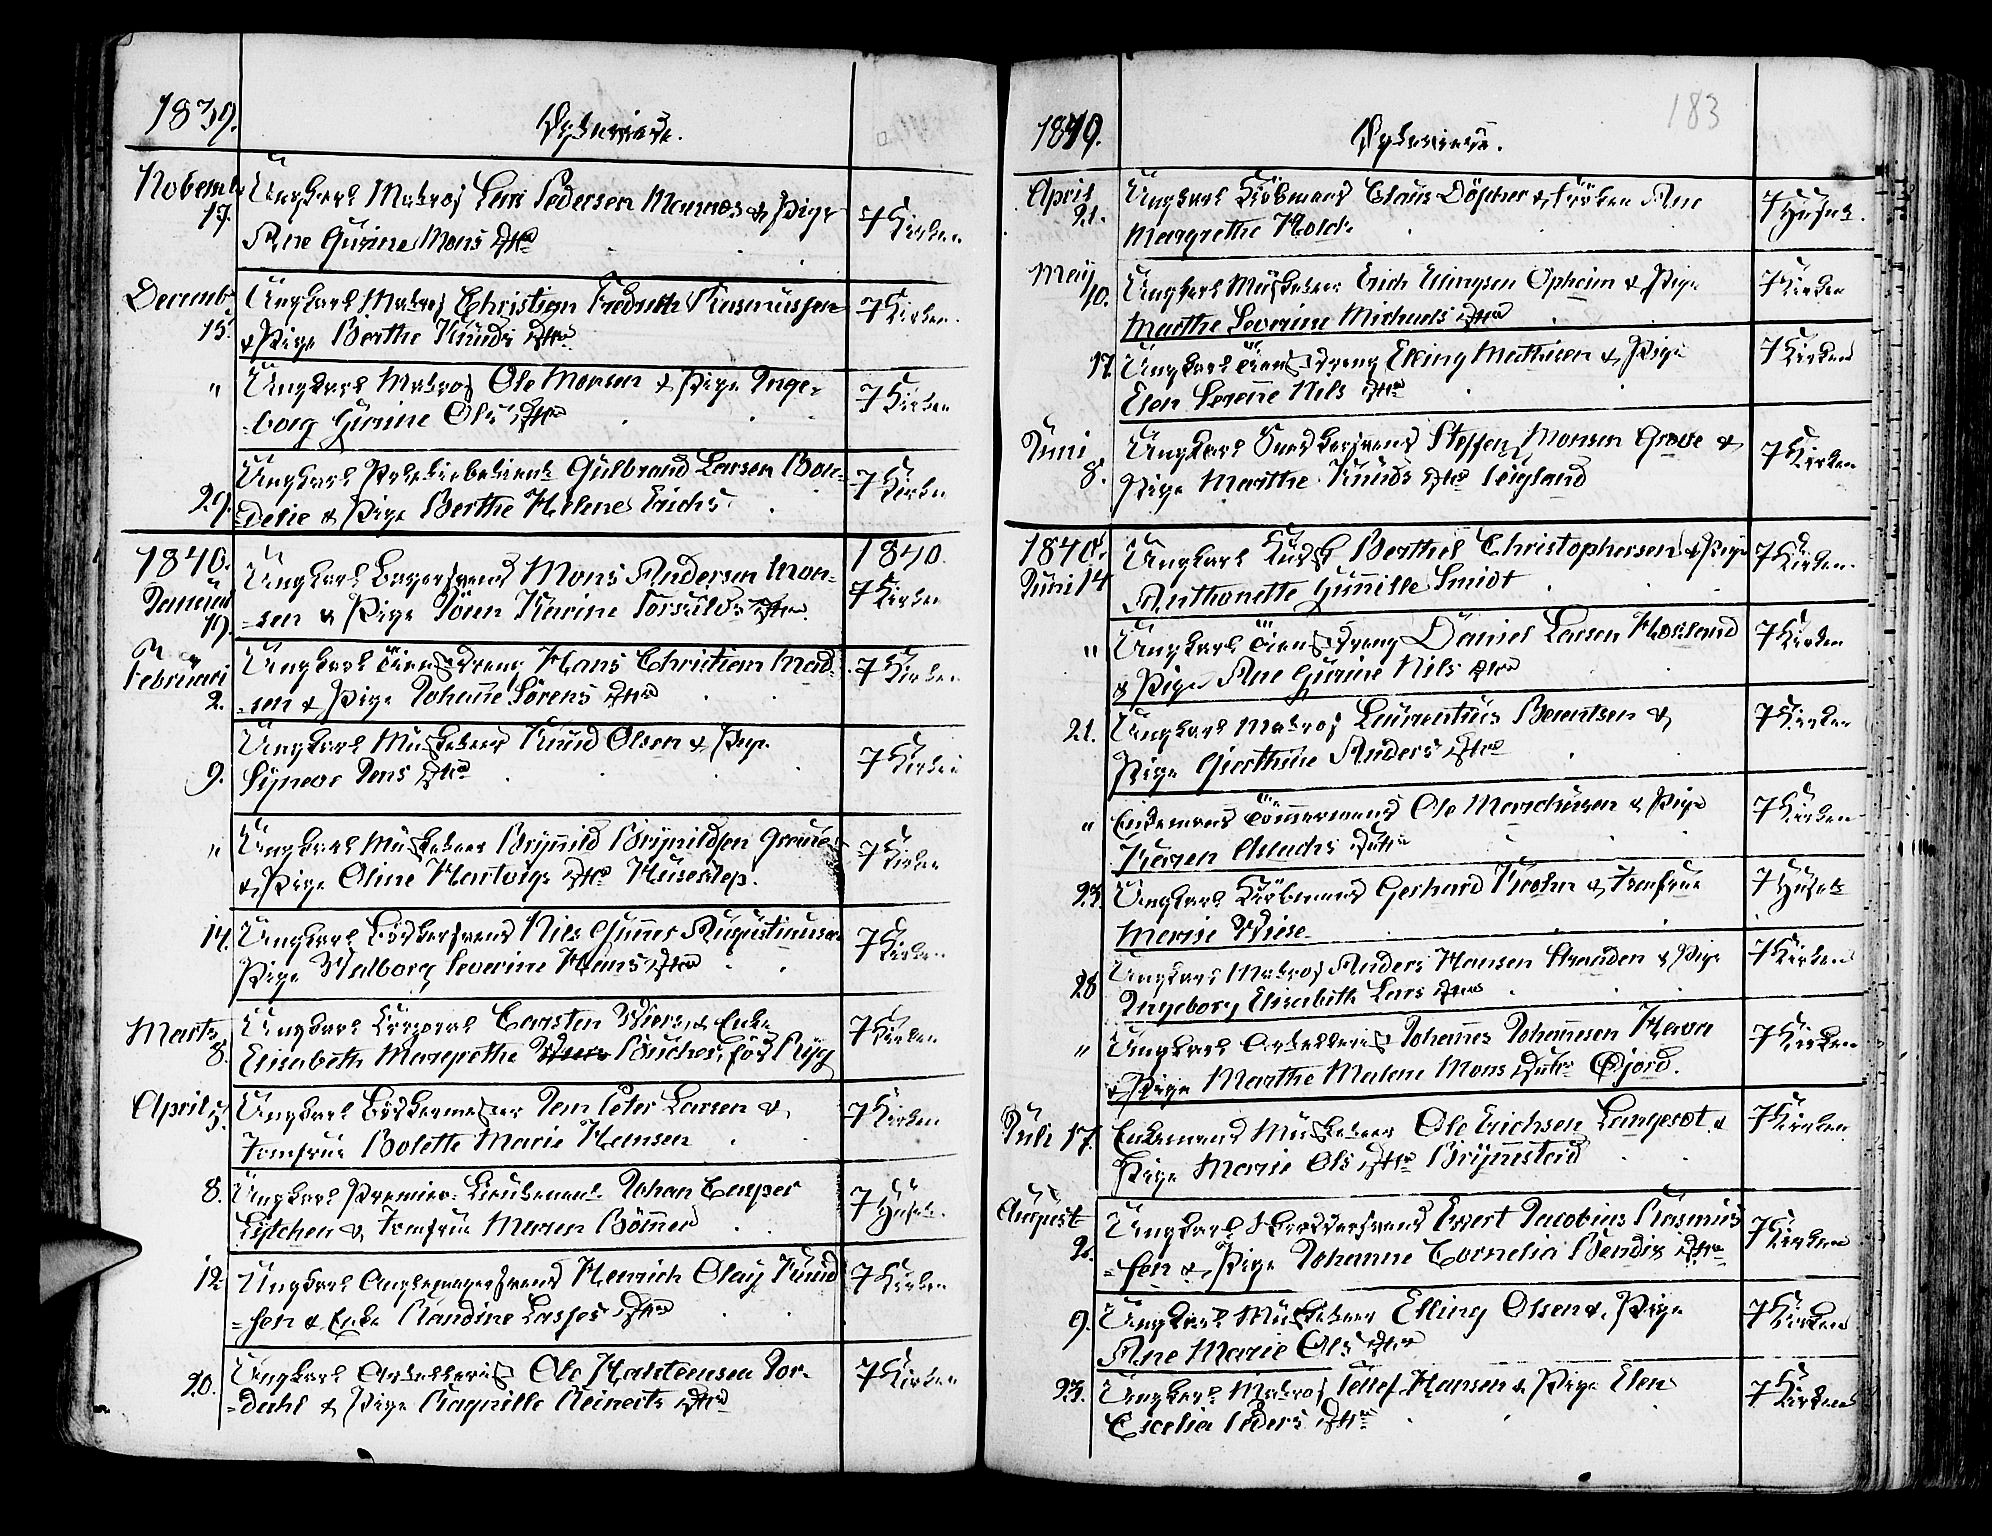 1839.
Copulerede.
Novemb. 17. Ungkarl Matros Lars Pedersen Mannes & Pige 7 Kirken
Ane Gurine Mons Dtr
Decemb. 15. Ungkarl Matros Christian Fredrich Rasmussen 7 Kirken.
& Pige Berthe Knuds Dtr
" Ungkarl Matros Ole Monsen & Pige Inge- 7 Kirken
=borg Gurine Ols Dtr
29. Ungkarl Gulbrand Larsen 7 Kirken
& Pige Berthe Helene Erichs
1840. 1840.
Januar 19. Ungkarl Bagersvend Mons Andersen Mon- 7 Kirken
=sen & Pige Karine Dtr.
Februari 2. Ungkarl Tienestdreng Hans Christian Mad- 7 Kirken
=sen & Pige Johanne Sörens Dtr
9. Ungkarl Musketeer Knud Olsen & Pige 7 Kirken
Syneve Jens Dtr
" Ungkarl Musketeer Brynild Brynildsen 7 Kirken
& Pige Oline Hartvigs Dtr Husestep.
14. Ungkarl Bödkersvend Nils Gunner Augustinusen 7 Kirken
Pige Valborg Severine Hans Dtr
Marts 8. Ungkarl Carsten Wiers & Enke 7 Kirken
Elisabeth Margrethe född Ryg
April 5. Ungkarl Bödkermester Jens Peter Larsen & 7 Kirken
Jomfrue Bolette Marie Hansen
8. Ungkarl Premier-Lieutenant Johan Casper 7 Huset.
Lytchen & Jomfrue Maren Bömer
12 Ungkarl Henrich Olay Knud 7 Kirken
=sen & Enke Randine Lasses Dtr
20. Ungkarl Arbeider Ole Haldensen Jor- 7 Kirken
=dahl & Pige Ragnille Reinerts Dtr
183
1840.
Copulerede.
April 21. Ungkarl Kiöbmand Claus Döscher & Fröken Ane 7 Huset.
Margrethe Holck
May 10. Ungkarl Musketeer Erich Ellingsen Opheim & Pige 7 Kirken
Marthe Severine Michaels Dtr
17. Ungkarl Tienestdreng Elling Mathisen & Pige 7 Kirken
Elen Serene Nils Dtr
Juni 8. Ungkarl Steffen Monsen Grove & 7 Kirken
Pige Marthe Knuds Dtr Leigland
1840. Juni 14 Ungkarl Kudsk Berthel Christophersen & Pige 7 Kirken.
Anthonette Gunille Smidt
" Ungkarl Tienestdreng Daniel Larsen Hosland 7 Kirken
& Pige Ane Gurine Nils Dtr
21. Ungkarl Matros Laurentius Berentsen & 7 Kirken
Pige Anders Dtr
" Enkemand Tömmermand Ole Marcussen & Pige 7 Kirken
Karen Aslachs Datter
23. Ungkarl Kiöbmand Gerhard Krohn & Jomfrue 7 Huset
Marie Wiese
28 Ungkarl Matros Anders Hansen Stranden & Pige 7 Kirken
Ingeborg Elisabeth Lars Dtr
" Ungkarl Arbeider Johannes Johannesen 7 Kirken
& Pige Marthe Malene Mons Datr
Juli 17. Enkemand Musketeer Ole Erichsen Langesæt & 7 Kirken
Pige Marie Ols Dtr Brynnestad
August 2. Ungkarl Skreddersvend Evert Jacobius Rasmus 7 Kirken
=sen & Pige Johanne Cornelia Bendix Dtr
9. Ungkarl Musketeer Elling Olsen & Pige 7 Kirken
Ane Marie Ols Dtr
23. Ungkarl Matros Tellef Hansen & Pige Elen 7 Kirken
Cecelia Peders Dtr